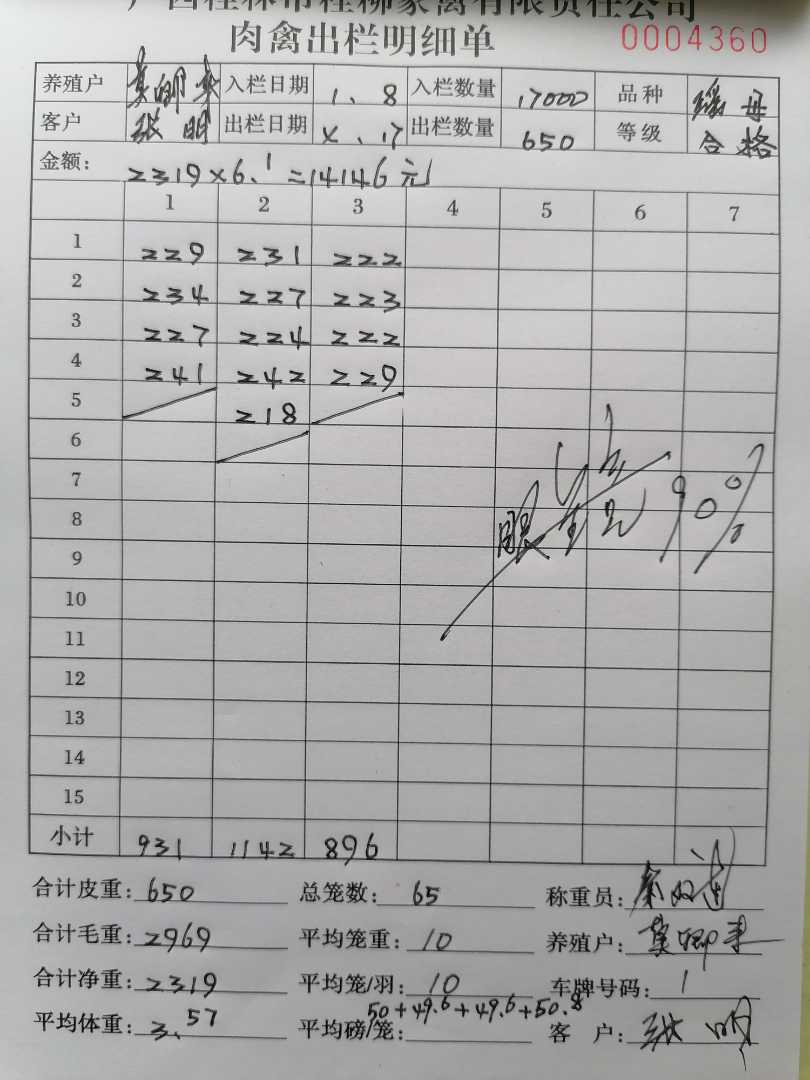 广西桂林市桂柳家禽有限责任公司
肉禽出栏明细单 0004360
养殖户 莫卿来 入栏日期 1、8 入栏数量 17000 品种 瑶母
客户 张明 出栏日期 X、17 出栏数量 650 等级 合格
金额: 2319×6.1=14146元
1 2 3 4 5 6 7
1 229 231 222
2 234 227 223
3 227 224 222
4 241 242 229
5 218
6
7
8 90%
9
10
11
12
13
14
15
小计 931 1142 896
合计皮重: 650 总笼数: 65 称重员:
合计毛重: 2969 平均笼重: 10 养殖户: 莫卿来
合计净重: 2319 平均笼/羽: 10 车牌号码: 1
50+49.6+49.6+50.8
平均体重: 3.57 平均磅/笼: 客 户: 张明